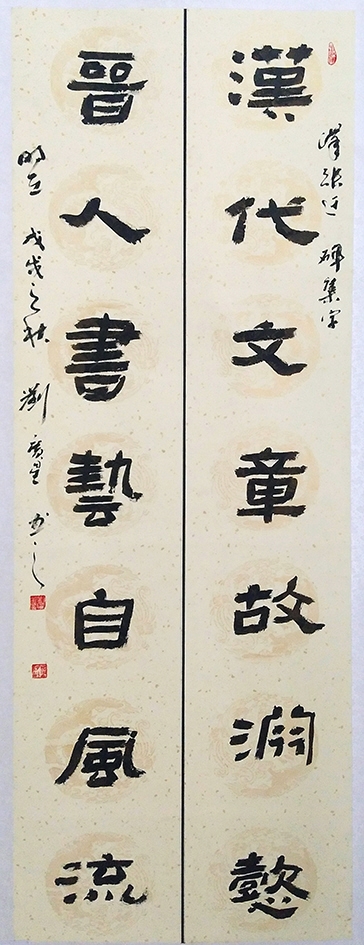 漢張遷碑集字
漢代文章故淵懿
晉人書藝自風流
戊戌之秋 劉 書之